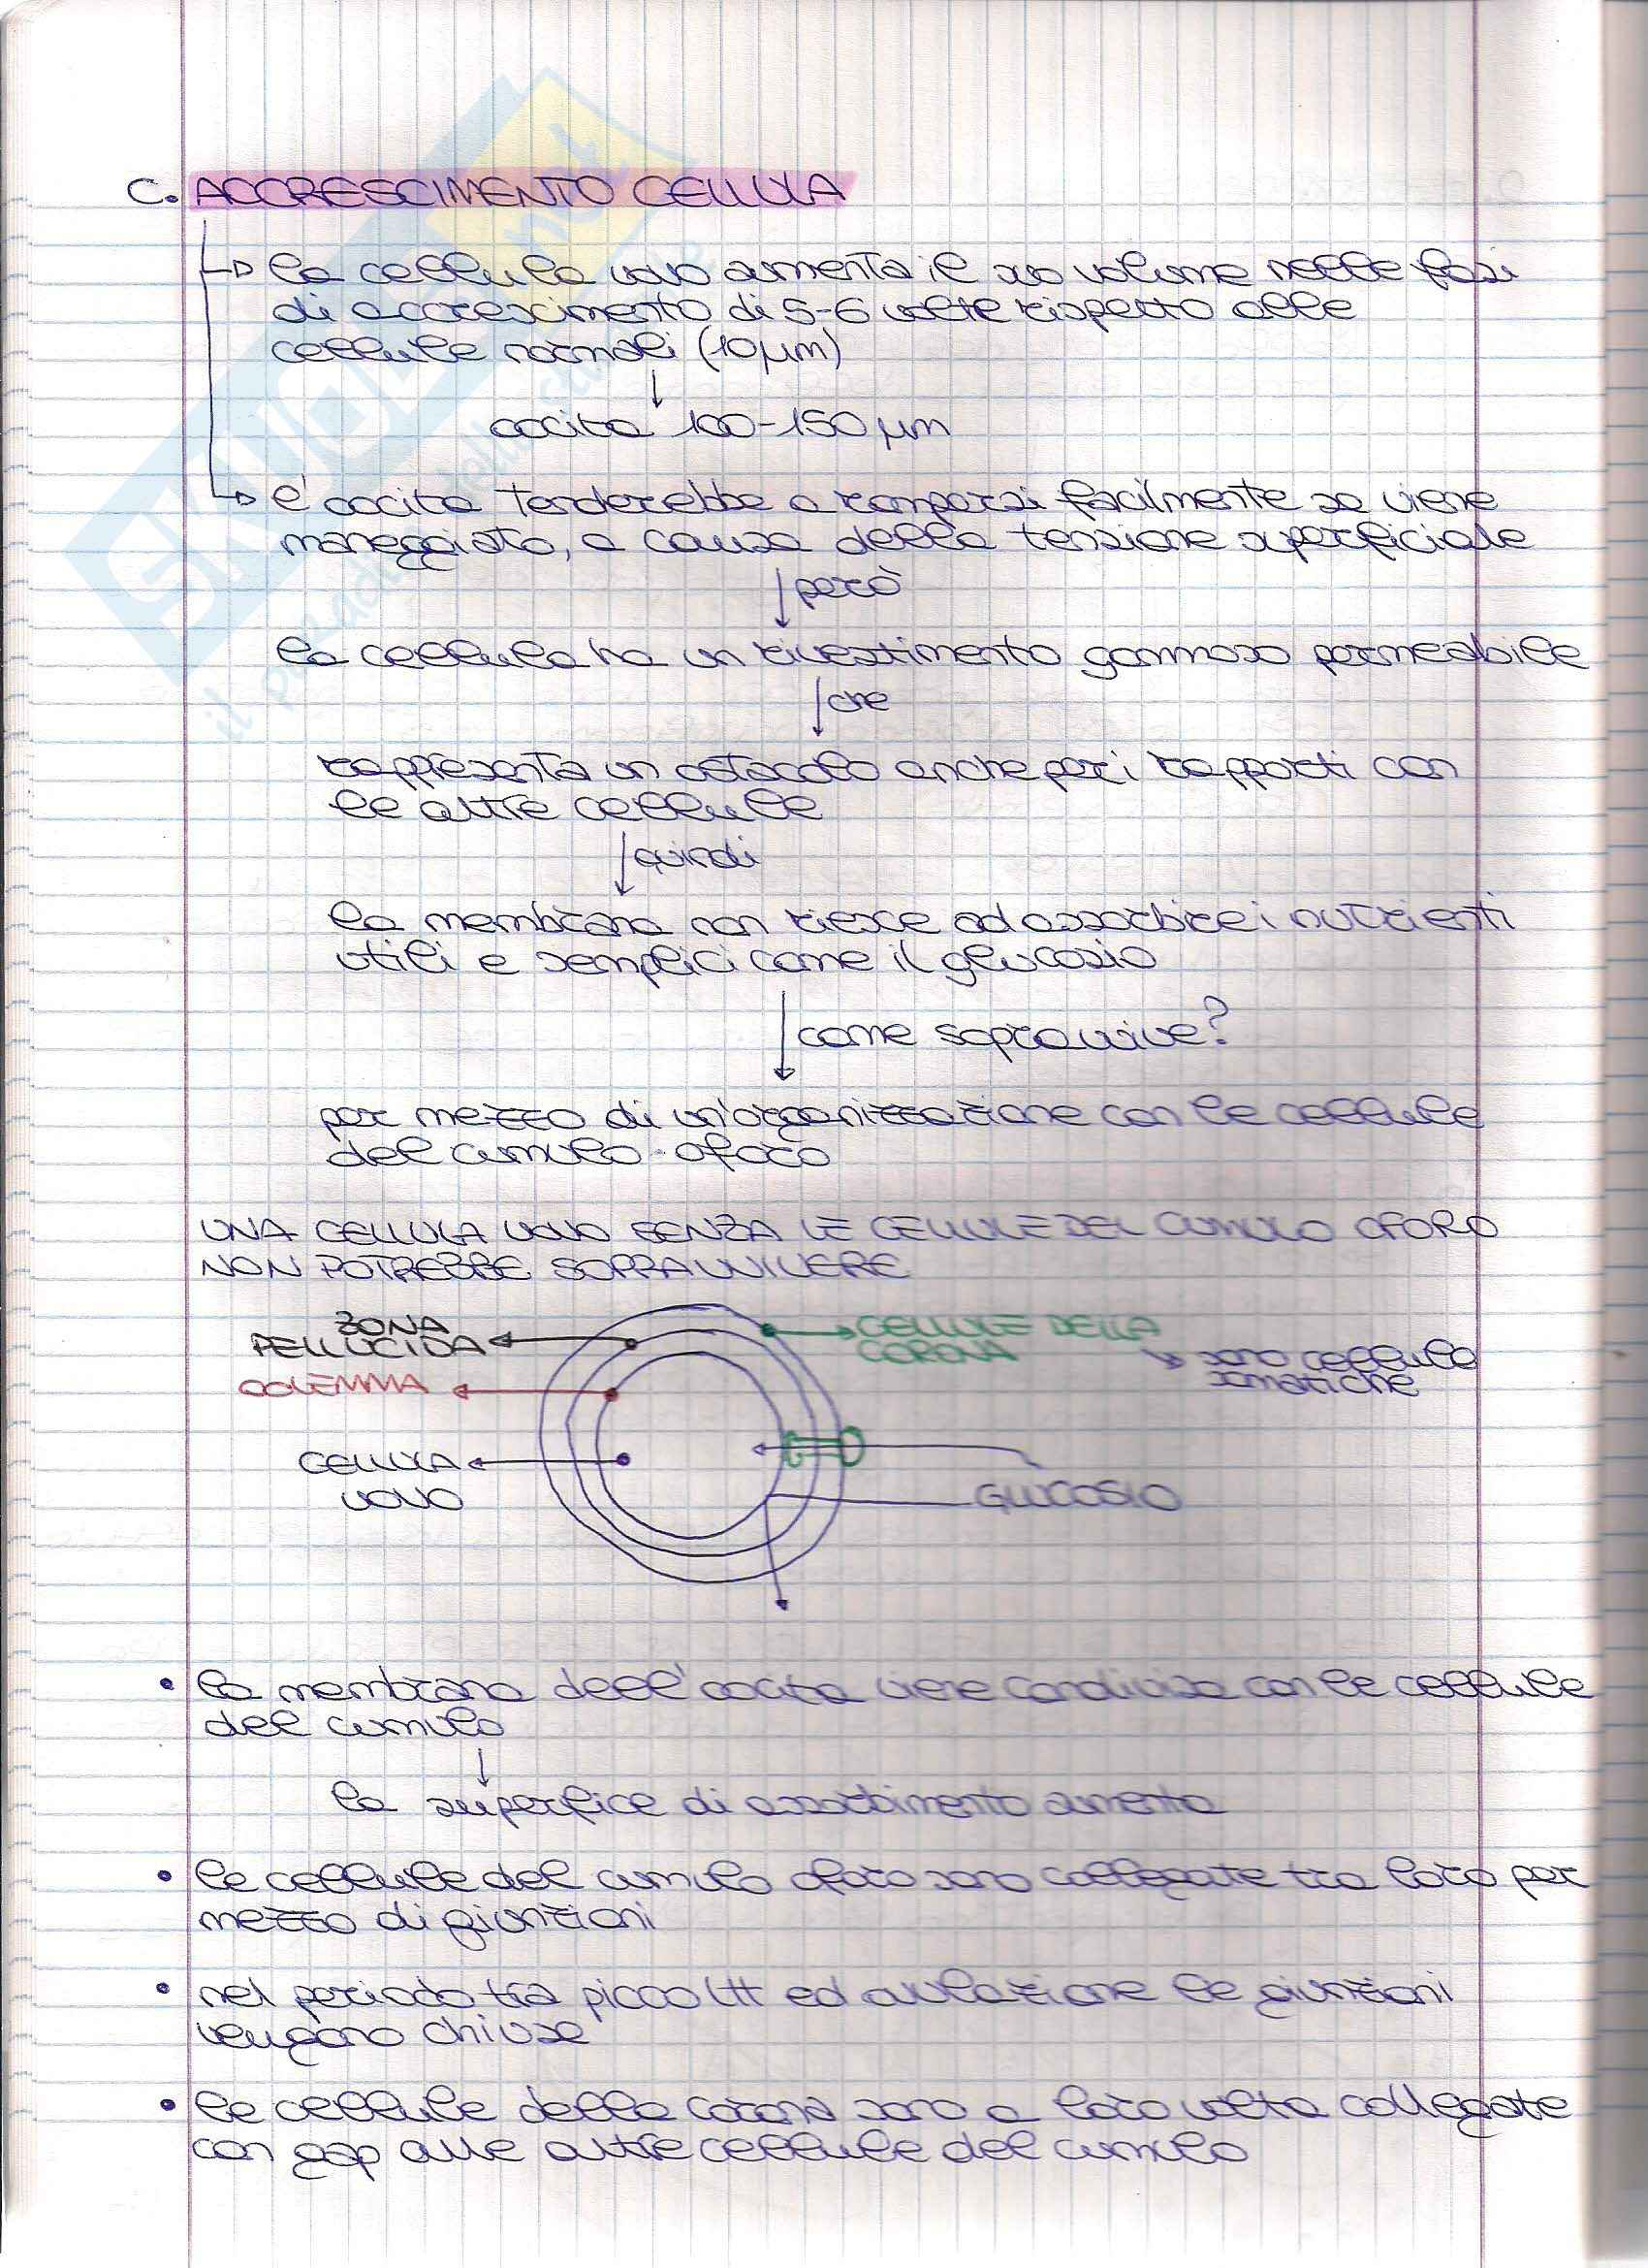 C. ACCRESCIMENTO CELLULA
la cellula uovo aumenta il suo volume nelle fasi
di accrescimento di 5-6 volte rispetto alle
cellule normali (10 µm)
ovocita 100-150 µm
l'ovocita tenderebbe a rompersi facilmente se viene
maneggiato, a causa della tensione superficiale
però
la cellula ha un rivestimento gommoso permeabile
che
rappresenta un ostacolo anche per i rapporti con
le altre cellule
quindi
la membrana non riesce ad assorbire i nutrienti
utili e semplici come il glucosio
come sopravvive?
per mezzo di un'organizzazione con le cellule
del cumulo ooforo
UNA CELLULA UOVO SENZA LE CELLULE DEL CUMULO OFORO
NON POTREBBE SOPRAVVIVERE
ZONA
PELLUCIDA
CELLULE DELLA
CORONA
sono cellule
somatiche
OOLEMMA
CELLULA
UOVO
GLUCOSIO
• la membrana dell'ovocita viene condivisa con le cellule
del cumulo
la superfice di assorbimento aumenta
• le cellule del cumulo oforo sono collegate tra loro per
mezzo di giunzioni
• nel periodo tra picco LH ed ovulazione le giunzioni
vengono chiuse
• le cellule della corona sono a loro volta collegate
con gap alle altre cellule del cumulo
SKUOLA.net